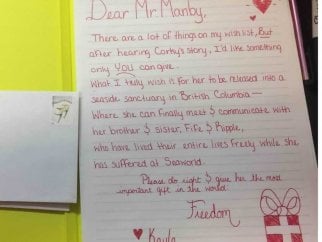 Dear Mr. Manby,
There are a lot of things on my wish list, But
after hearing Corky's story, I'd like something
only YOU can give.
What I truly wish is for her to be released into a
seaside sanctuary in British Columbia—
Where she can finally meet $ communicate with
her brother $ sister, Fife $ Ripple,
who have lived their entire lives Freely while she
has suffered at Seaworld.
Please do right $ give her the most
important gift in the world:
Freedom
Kayla